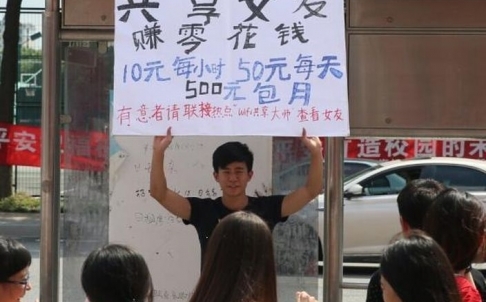 共享女友
赚零花钱
10元每小时 50元每天
500元包月
有意者请联接热点"wifi共享大师"查看女友
平安
造校园的未